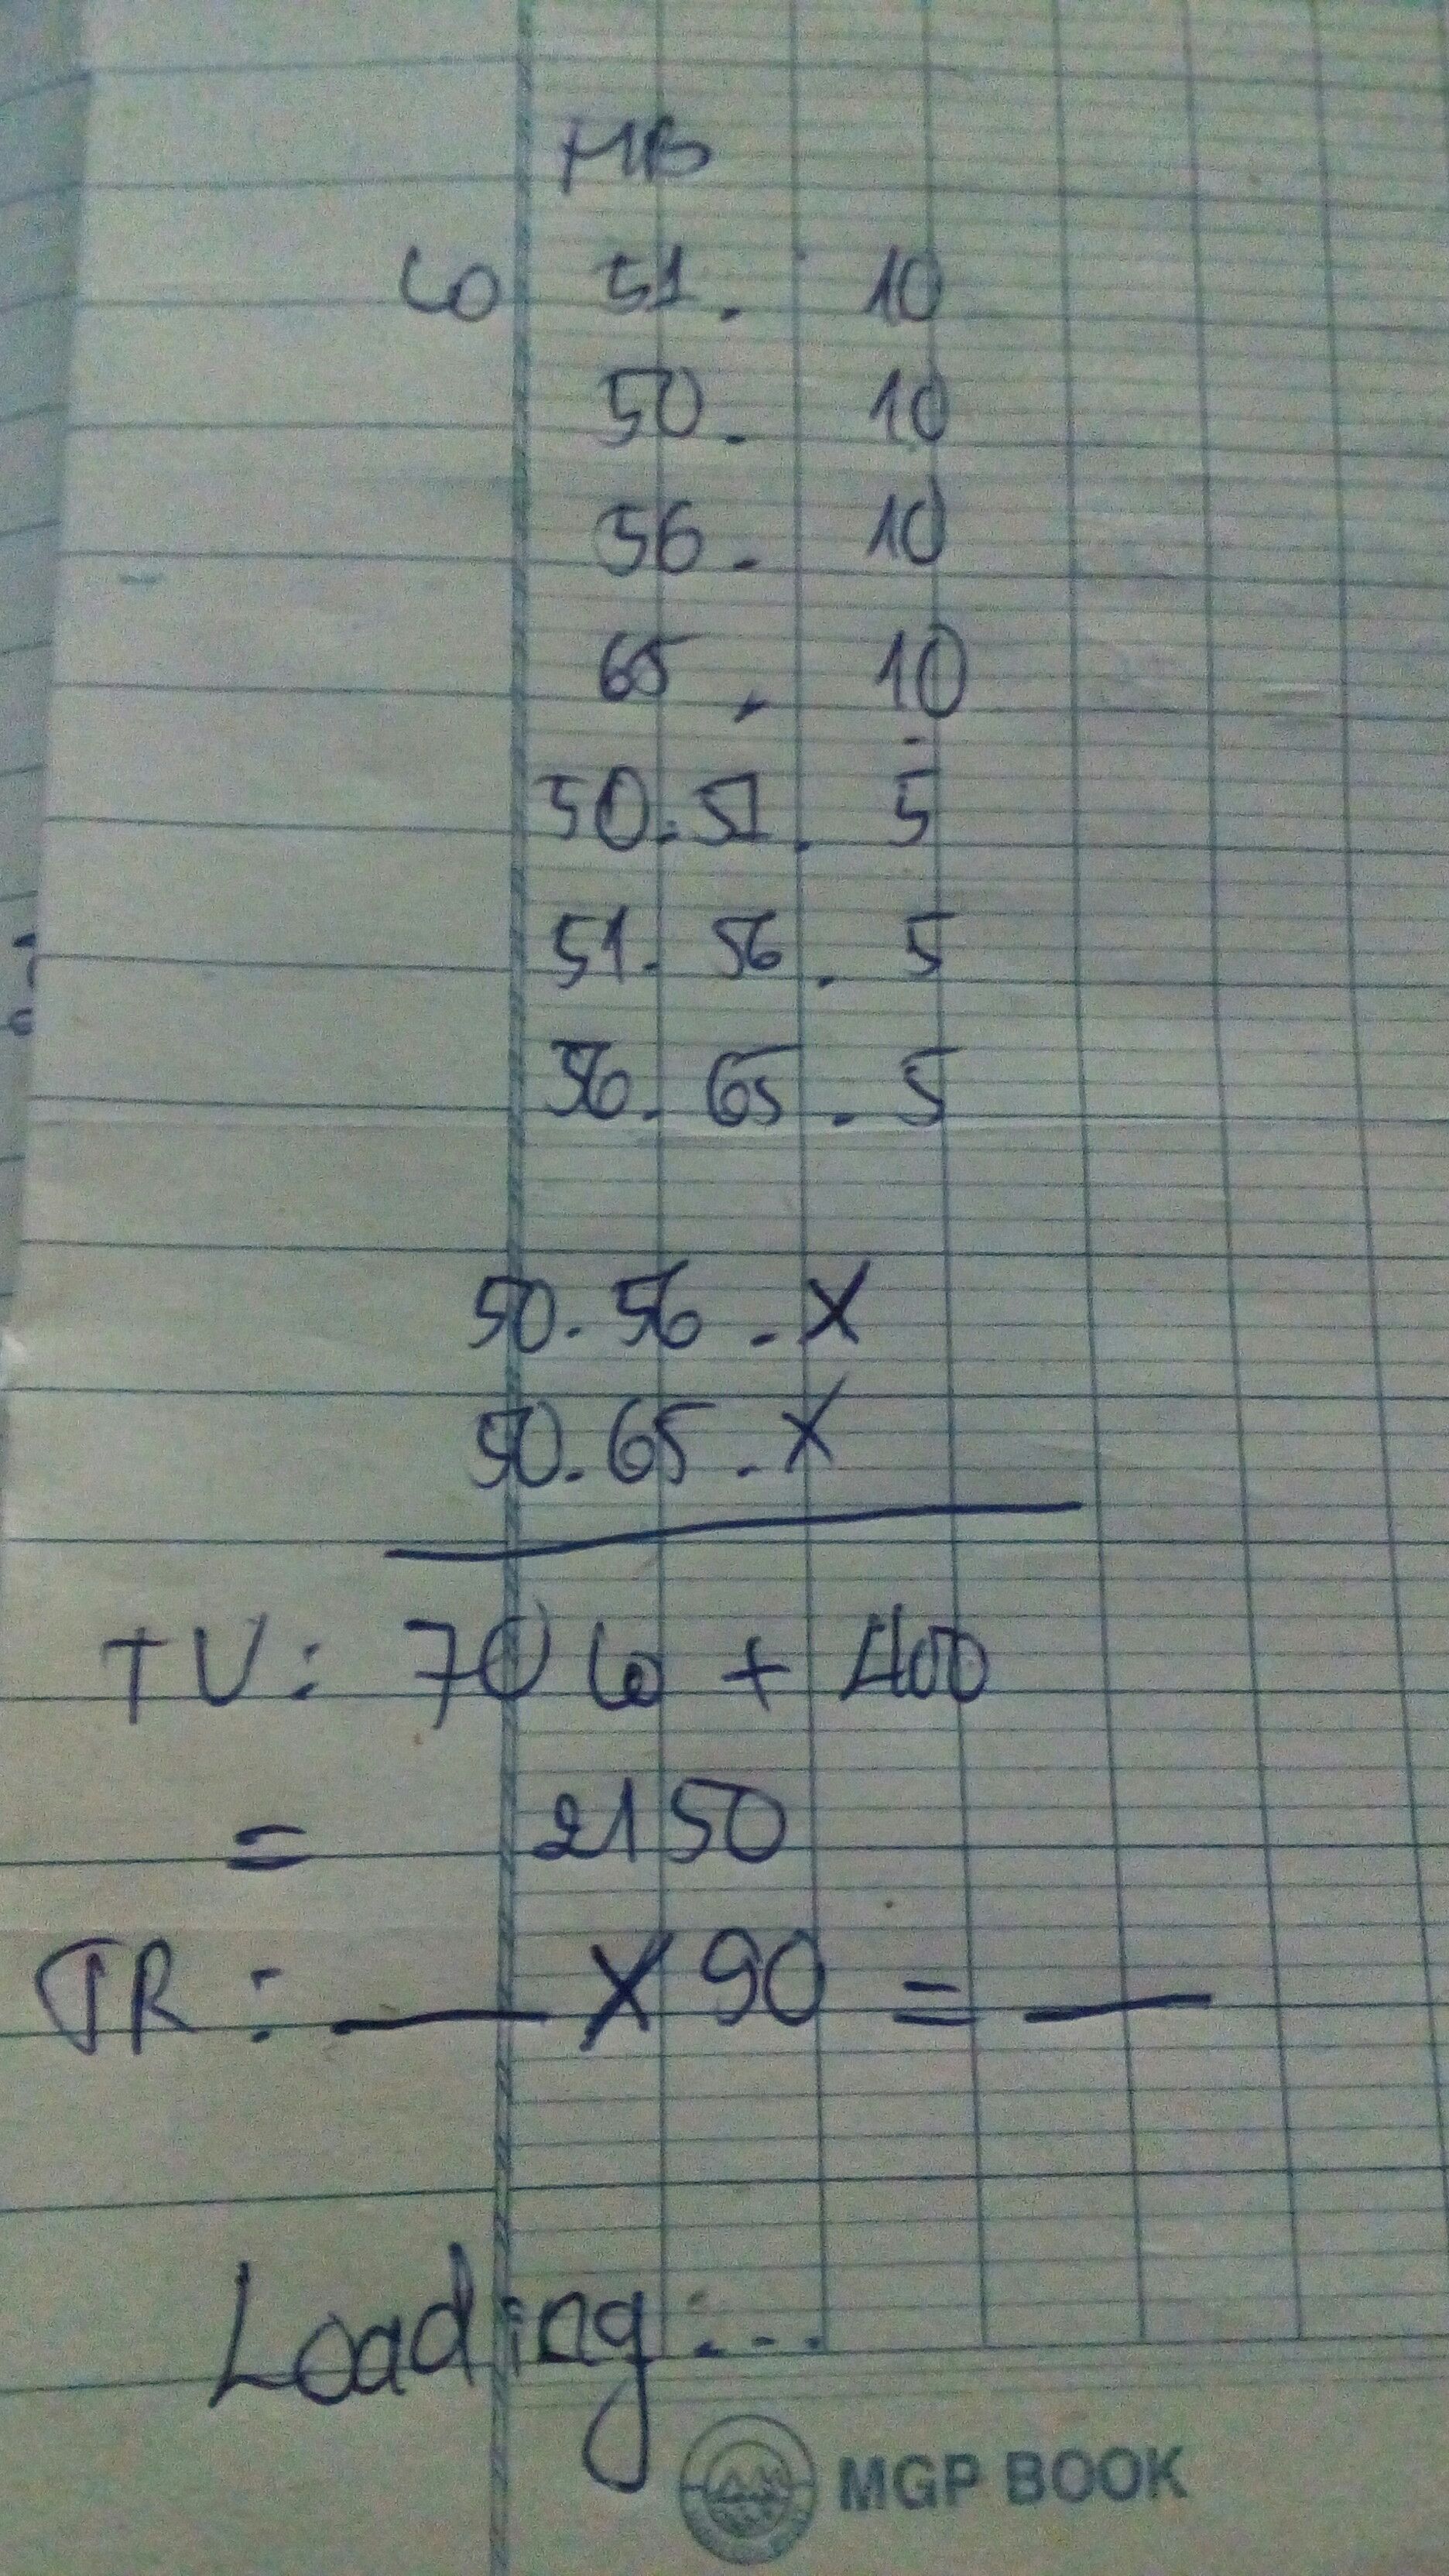 MB
Lo 51. 10
50. 10
56. 10
65. 10
50. 51. 5
51. 56. 5
56. 65. 5
50. 56. X
50. 65. X
TV: 70 Lo + 400
= 2150
TR: ___ X 90 = ___
Loading...
MGP BOOK